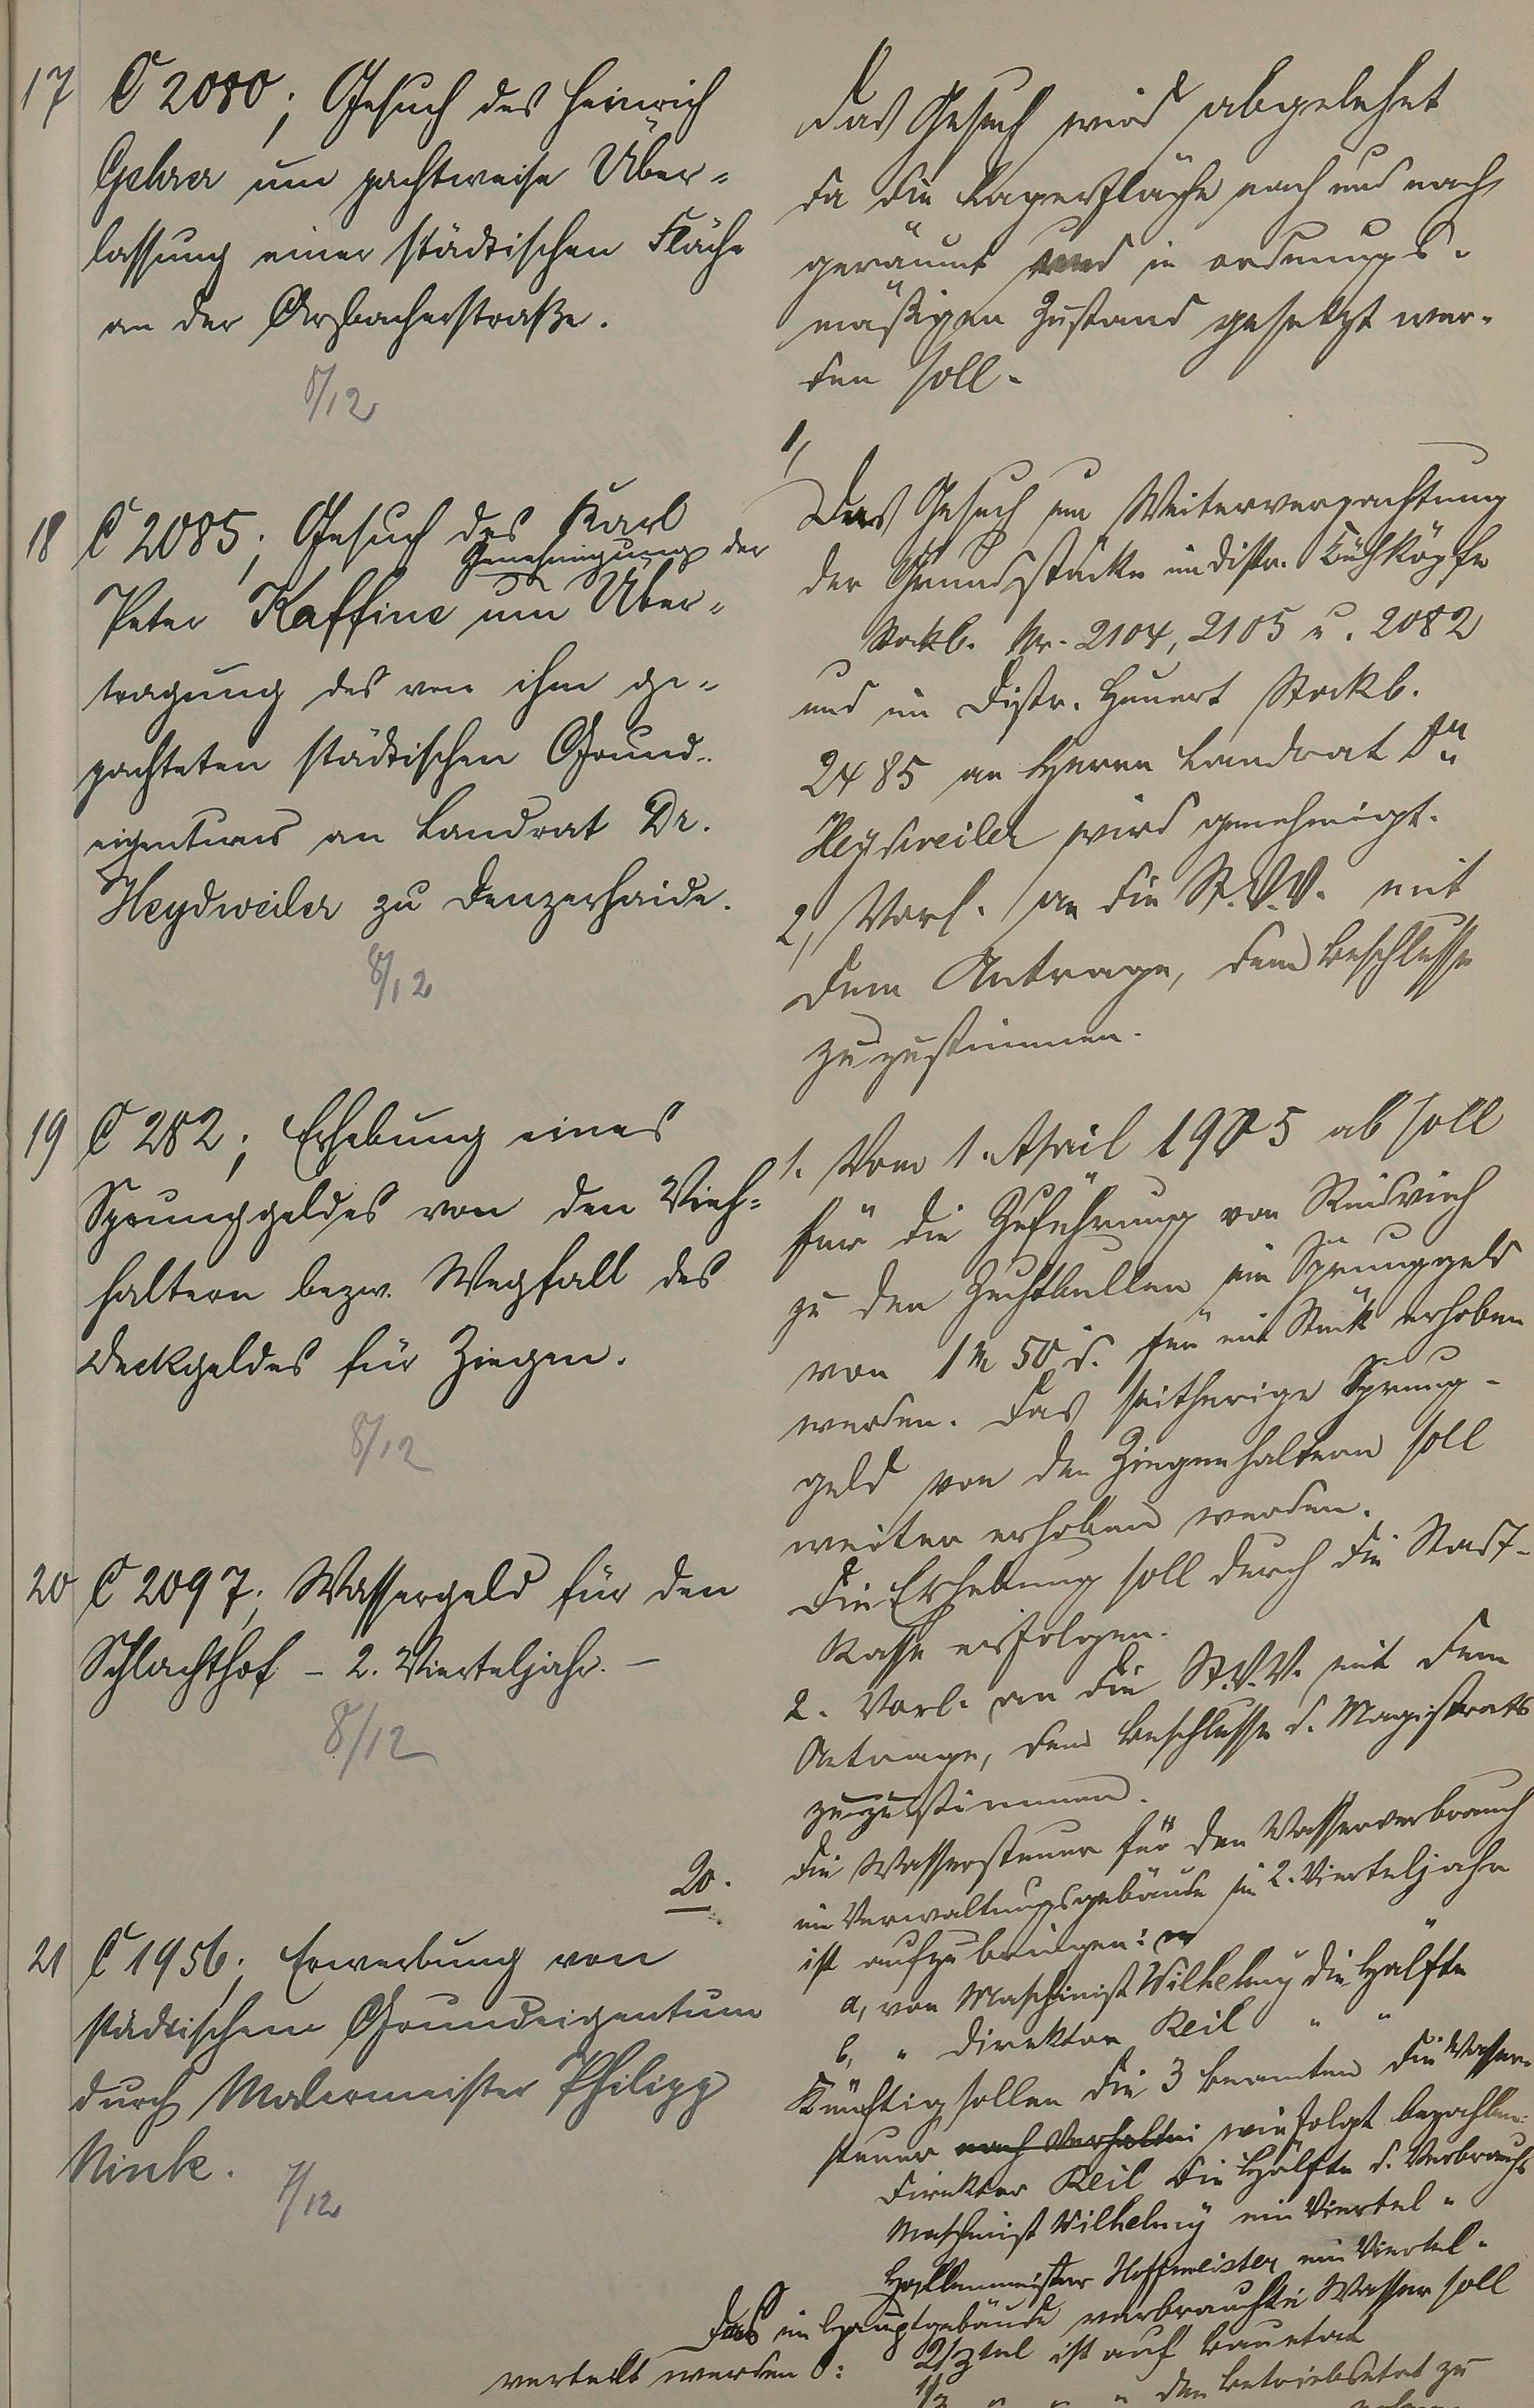 17 C 2080; Gesuch des Heinrich
Gehrer um pachtweise Über-
lassung einer städtischen Fläche
an der Arzbacherstraße.
8/12
Das Gesuch wird abgelehnt
da die Lagerfläche nach und nach
geräumt und in ordnungs-
mäßigen Zustand gesetzt wer-
den soll.
18 C 2085; Gesuch des Karl
Genehmigung der
Peter Kaffine um Über-
tragung des von ihm ge-
pachteten städtischen Grund-
eigentums an Landrat Dr.
Heydweiler zu Denzerhaide.
8/12
1,
Das Gesuch um Weiterverpachtung
der Grundstücke im Distr. Kühköpfe
Stockb. Nr. 2104, 2105 u. 2082
und im Distr. Hunert Stockb.
2485 an Herrn Landrat Dr.
Heydweiler wird genehmigt.
2, Vorl. an die St.V.V. mit
dem Antrage, dem Beschlusse
zuzustimmen.
19 C 282; Erhebung eines
Sprunggeldes von den Vieh-
haltern bezw. Wegfall des
Deckgeldes für Ziegen.
8/12
1. Vom 1. April 1905 ab soll
für die Zuführung von Rindvieh
zu den Zuchtbullen ein Sprunggeld
von 1 M 50 d. für ein Stück erhoben
werden. Das seitherige Sprung-
geld von den Ziegenhaltern soll
weiter erhoben werden.
Die Erhebung soll durch die Stadt-
kasse erfolgen.
2. Vorl. an die St.V.V. mit dem
Antrage, dem Beschlusse d. Magistrats
zuzustimmen.
20 C 2097; Wassergeld für den
Schlachthof – 2. Vierteljahr. –
8/12
20.
Die Wassersteuer für den Wasserverbrauch
im Verwaltungsgebäude im 2. Vierteljahr
ist aufzubringen:
a, von Maschinist Wilhelmy die Hälfte
b, " Direktor Keil " "
Künftig sollen die 3 Beamten die Wasser-
steuer nach Verhältni wie folgt bezahlen:
Direktor Keil die Hälfte d. Verbrauchs
Maschinist Wilhelmy ein Viertel "
Hallenmeister Hoffmeister ein Viertel "
Das im Hauptgebäude verbrauchte Wasser soll
verteilt werden: 2/3tel ist auf Bauetat
1/3 " " " den Betriebsetat zu
21 C 1956; Erwerbung von
städtischem Grundeigentum
durch Malermeister Philipp
Nink.
7/12